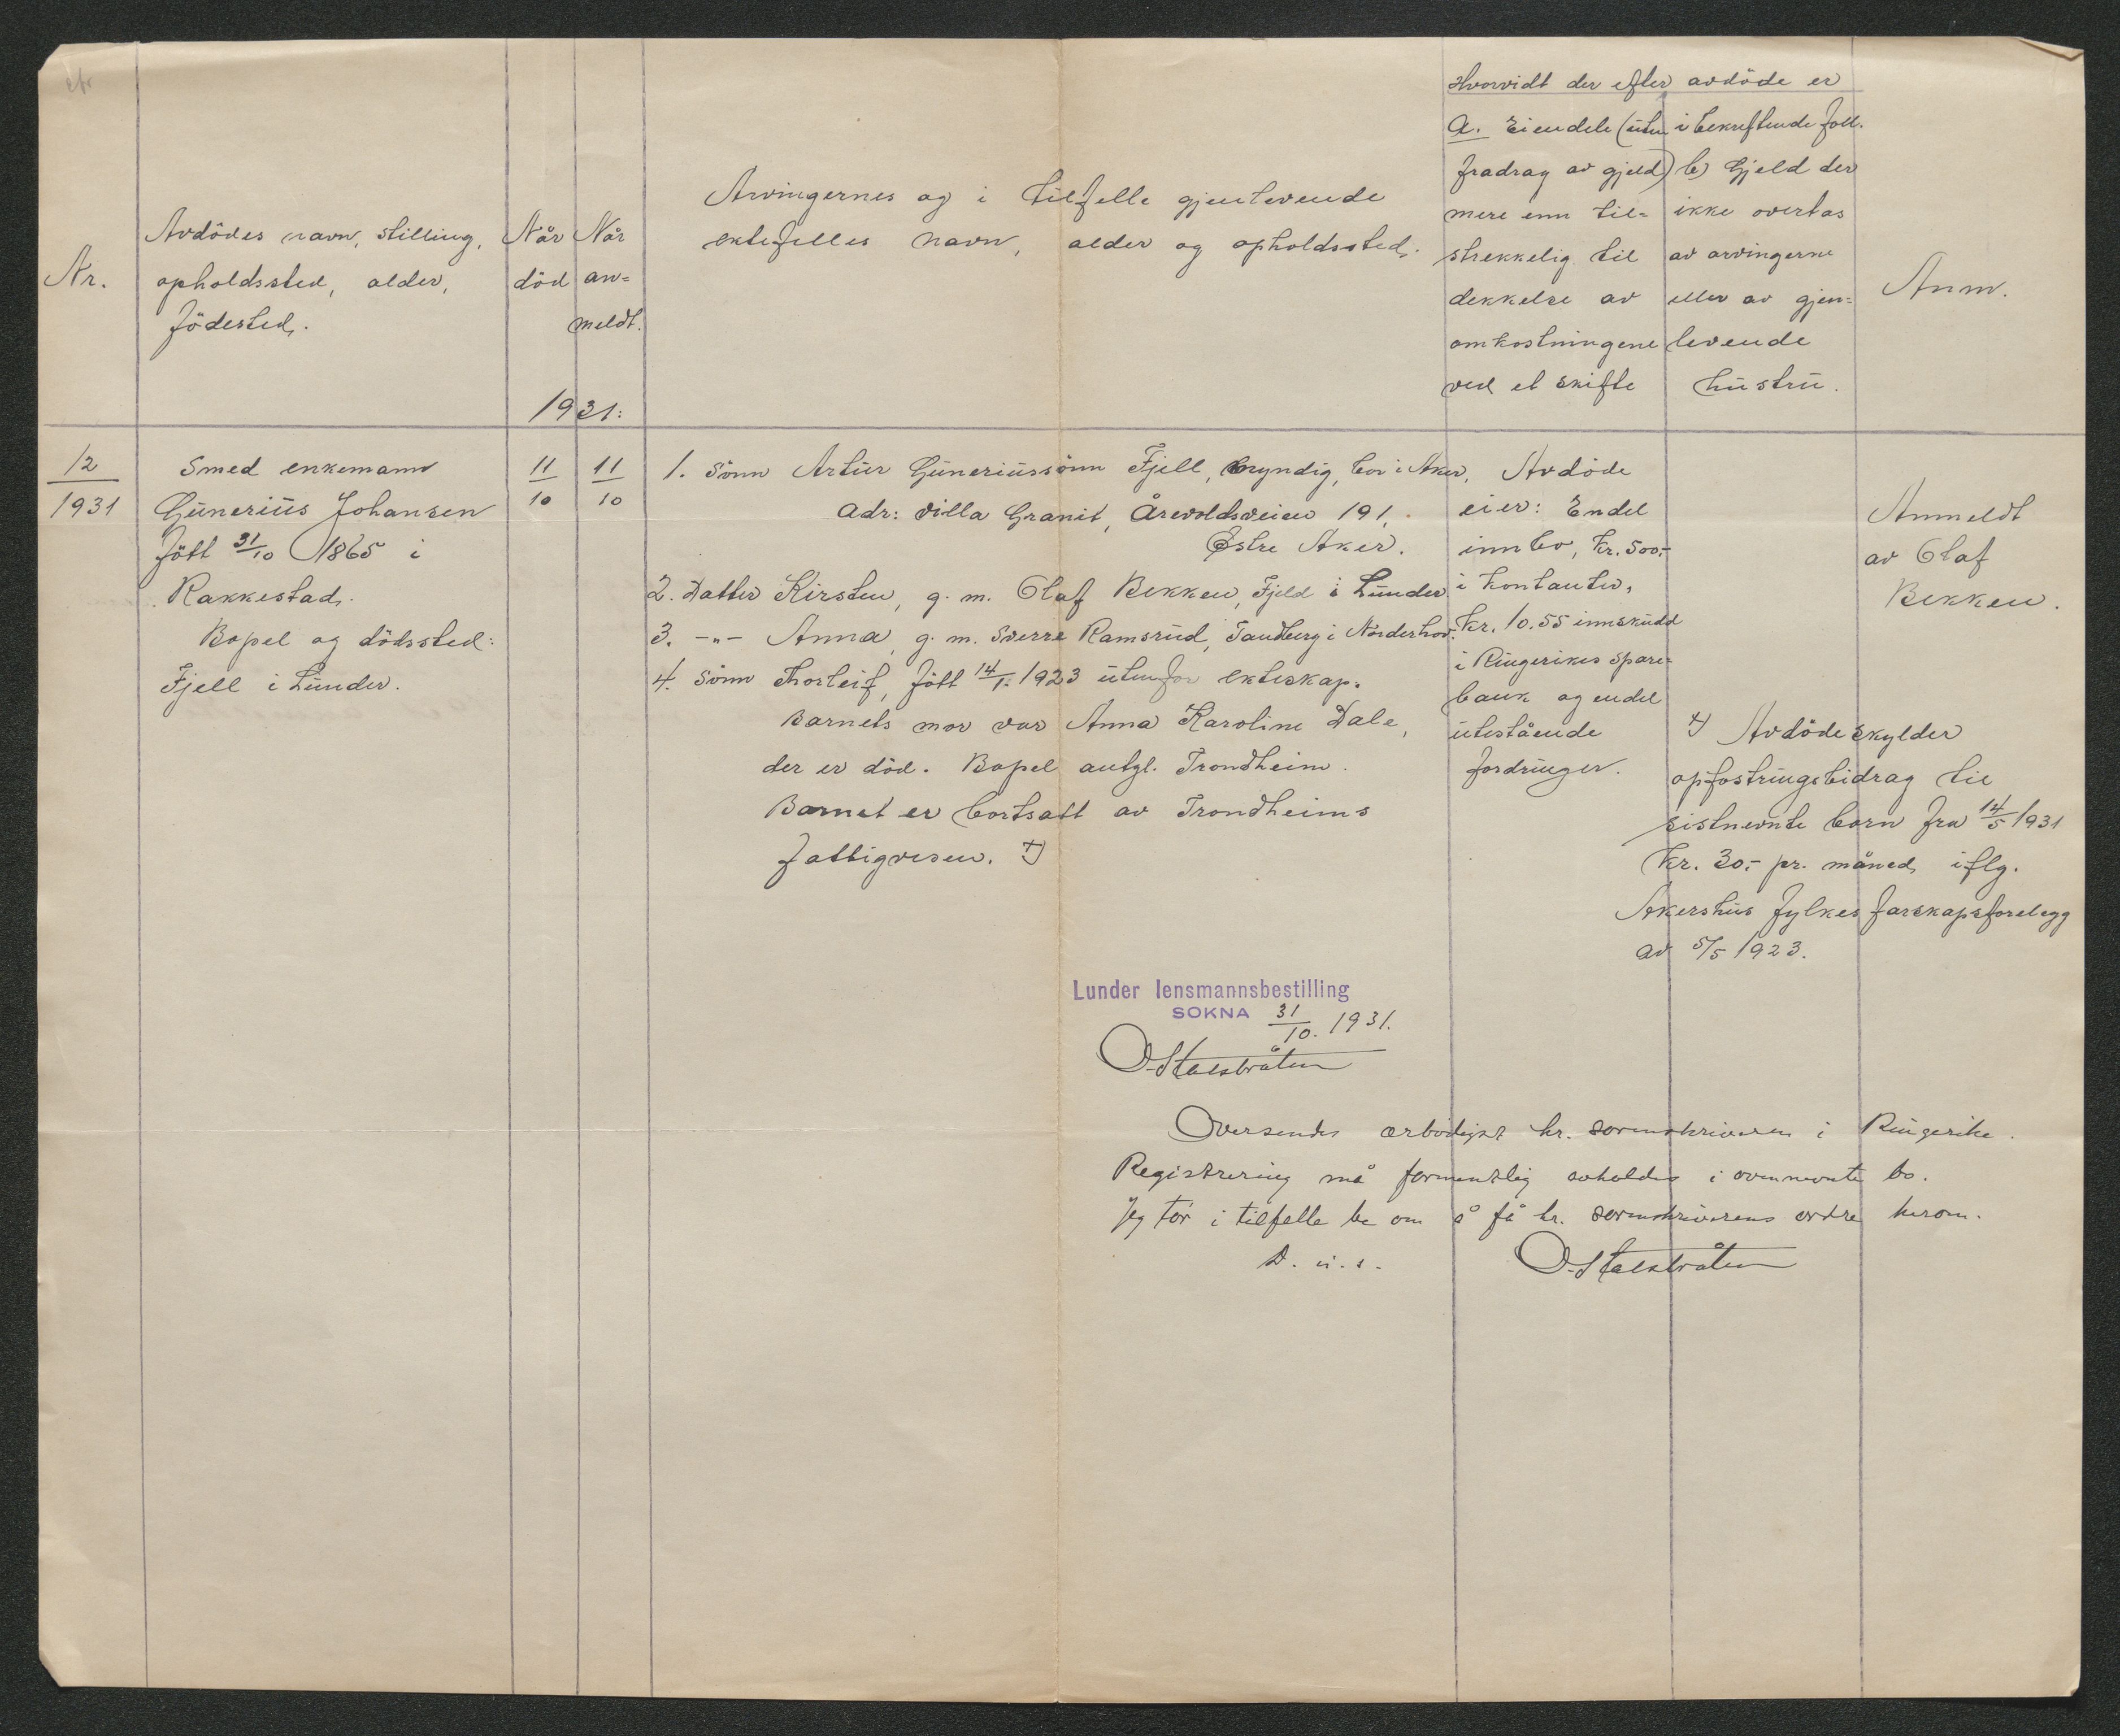 Nr.
Avdödes navn, stilling,
opholdssted, alder,
födested.
Når
död
Når
an-
meldt.
1931:
Arvingernes og i tilfelle gjenlevende
ektefelles navn, alder og opholdssted.
Hvorvidt der efter avdöde er
a. Eiendele (uten
fradrag av gjeld)
mere enn til-
strekkelig til
dekkelse av
omkostningene
ved et skifte
i bekreftende fall.
b) Gjeld der
ikke overtas
av arvingerne
eller av gjen-
levende
hustru.
Anm.
12
1931
Smed enkemann
Gunerius Johansen
födt 31/10 1865 i
Rakkestad.
Bopel og dödssted:
Fjell i Lunder.
11
10
11
10
1. Sönn Artur Guneriussönn Fjell, myndig, bor i Aker,
Adr: Villa Granit, Årvoldsveien 191,
Östre Aker.
2. Datter Kirsten, g. m. Olaf Bekken, Fjeld i Lunder
3. -"- Anna, g. m. Sverre Ramsrud, Tandberg i Norderhov.
4. Sönn Thorleif, födt 14/1. 1923 utenfor ekteskap.
Barnets mor var Anna Karoline Dale,
der er död. Bopel antgl. Trondheim.
Barnet er bortsatt av Trondheims
fattigvesen. +)
Avdöde
eier: Endel
innbo, Kr. 500,-
i kontanter,
Kr. 10.55 innskudd
i Ringerikes Spare-
bank og endel
utestående
fordringer.
Anmeldt
av Olaf
Bekken.
+) Avdöde skylder
opfostringsbidrag til
sistnevnte barn fra 14/5 1931
Kr. 30,- pr. måned, iflg.
Akershus fylkes farskapsforelegg
av 5/5 1923.
Lunder lensmannsbestilling
SOKNA 31/10. 1931.
O. Stalsbråten
Oversendes ærbödigst hr. sorenskriveren i Ringerike.
Registrering må formentlig avholdes i ovennevnte bo.
Jeg tör i tilfelle be om å få hr. sorenskriverens ordre herom.
D. u. s.
O. Stalsbråten